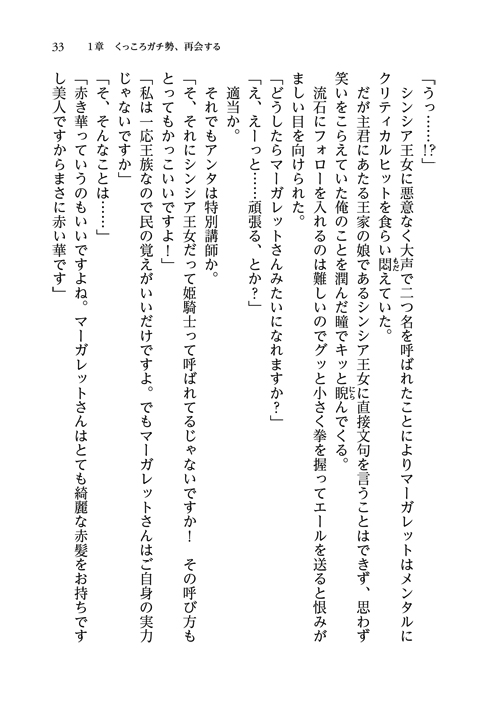 33　1章　くっころガチ勢、再会する
「うっ……!?」
　シンシア王女に悪意なく大声で二つ名を呼ばれたことによりマーガレットはメンタルに
クリティカルヒットを食らい悶えていた。
　だが主君にあたる王家の娘であるシンシア王女に直接文句を言うことはできず、思わず
笑いをこらえていた俺のことを潤んだ瞳でキッと睨んでくる。
　流石にフォローを入れるのは難しいのでグッと小さく拳を握ってエールを送ると恨みが
ましい目を向けられた。
「どうしたらマーガレットさんみたいになれますか？」
「え、えーっと……頑張る、とか？」
　適当か。
　それでもアンタは特別講師か。
「そ、それにシンシア王女だって姫騎士って呼ばれてるじゃないですか！　その呼び方も
とってもかっこいいですよ！」
「私は一応王族なので民の覚えがいいだけですよ。でもマーガレットさんはご自身の実力
じゃないですか」
「そ、そんなことは……」
「赤き華っていうのもいいですよね。マーガレットさんはとても綺麗な赤髪をお持ちです
し美人ですからまさに赤い華です」